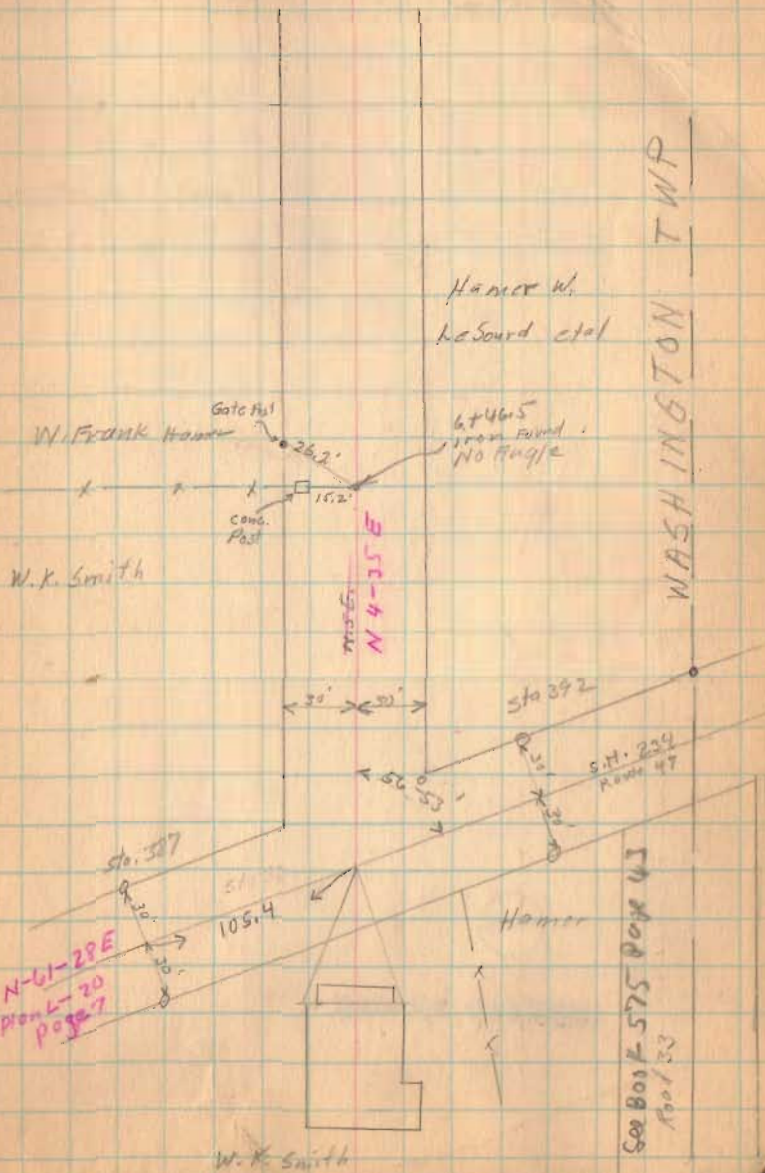 WASHINGTON TWP
Hamer W.
LeSourd etal
Gate Post
W. Frank Hamer
26.2'
6+46.5
iron Found
No Angle
x x x
15.2'
conc.
Post
W.K. Smith
N 4-35 E
30' 30'
Sta 392
56-53'
30'
S.H. 234
Route 47
30'
Sta. 387
30'
105.4
30'
Hamer
N-61-28E
Plan L-20
page 7
See Book 575 Page 43
Road 33
W.K. Smith